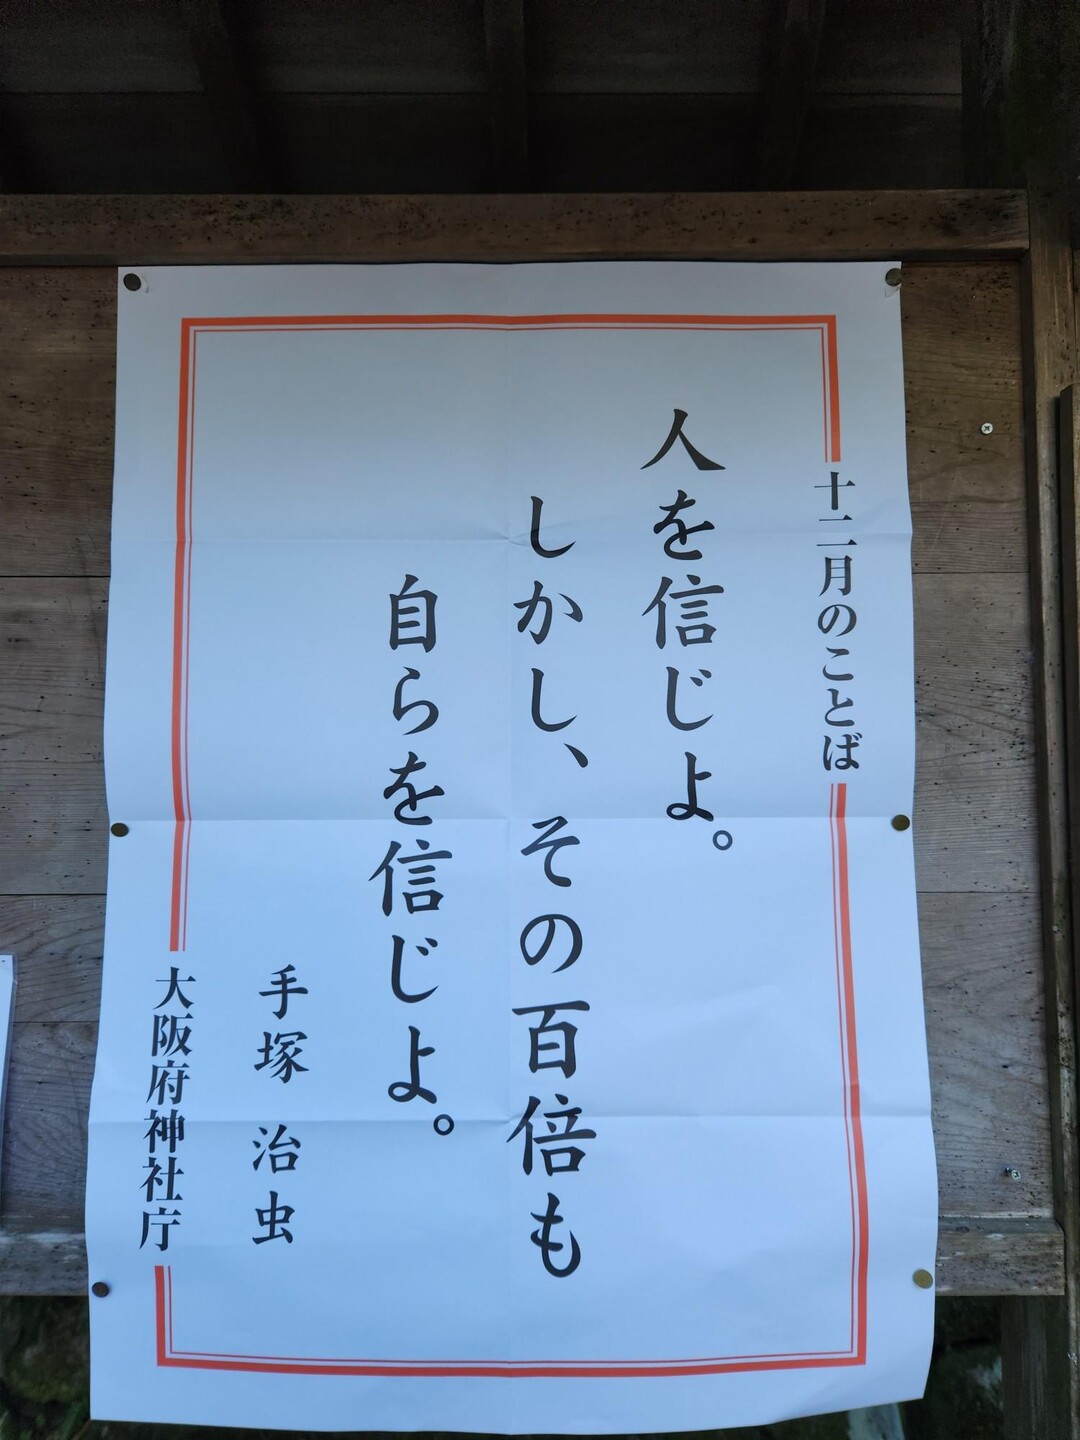 十二月のことば
人を信じよ。
しかし、その百倍も
自らを信じよ。
手塚 治虫
大阪府神社庁